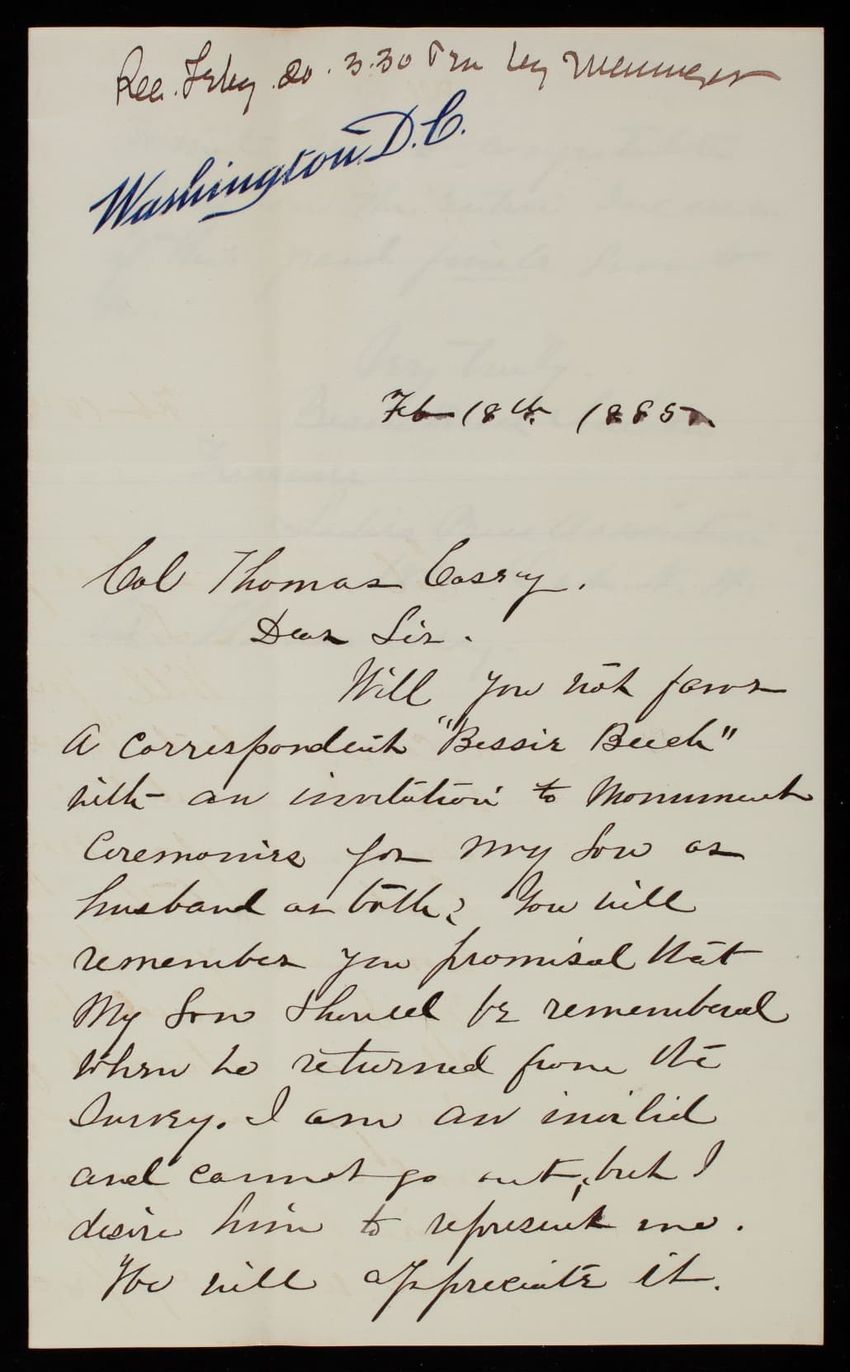 Rec. Feby. 20. 3.30 Pm by Messenger
Washington D.C.
Feb 18th 1885
Col Thomas Casey.
Dear Sir.
Will you not favor
A correspondent "Bessie Beech"
with an invitation to Monument
Ceremonies for my Son or
husband or both? You will
remember you promised that
My Son should be remembered
when he returned from the
Survey. I am an invilid
and cannot go out, but I
desire him to represent me.
We will appreciate it.